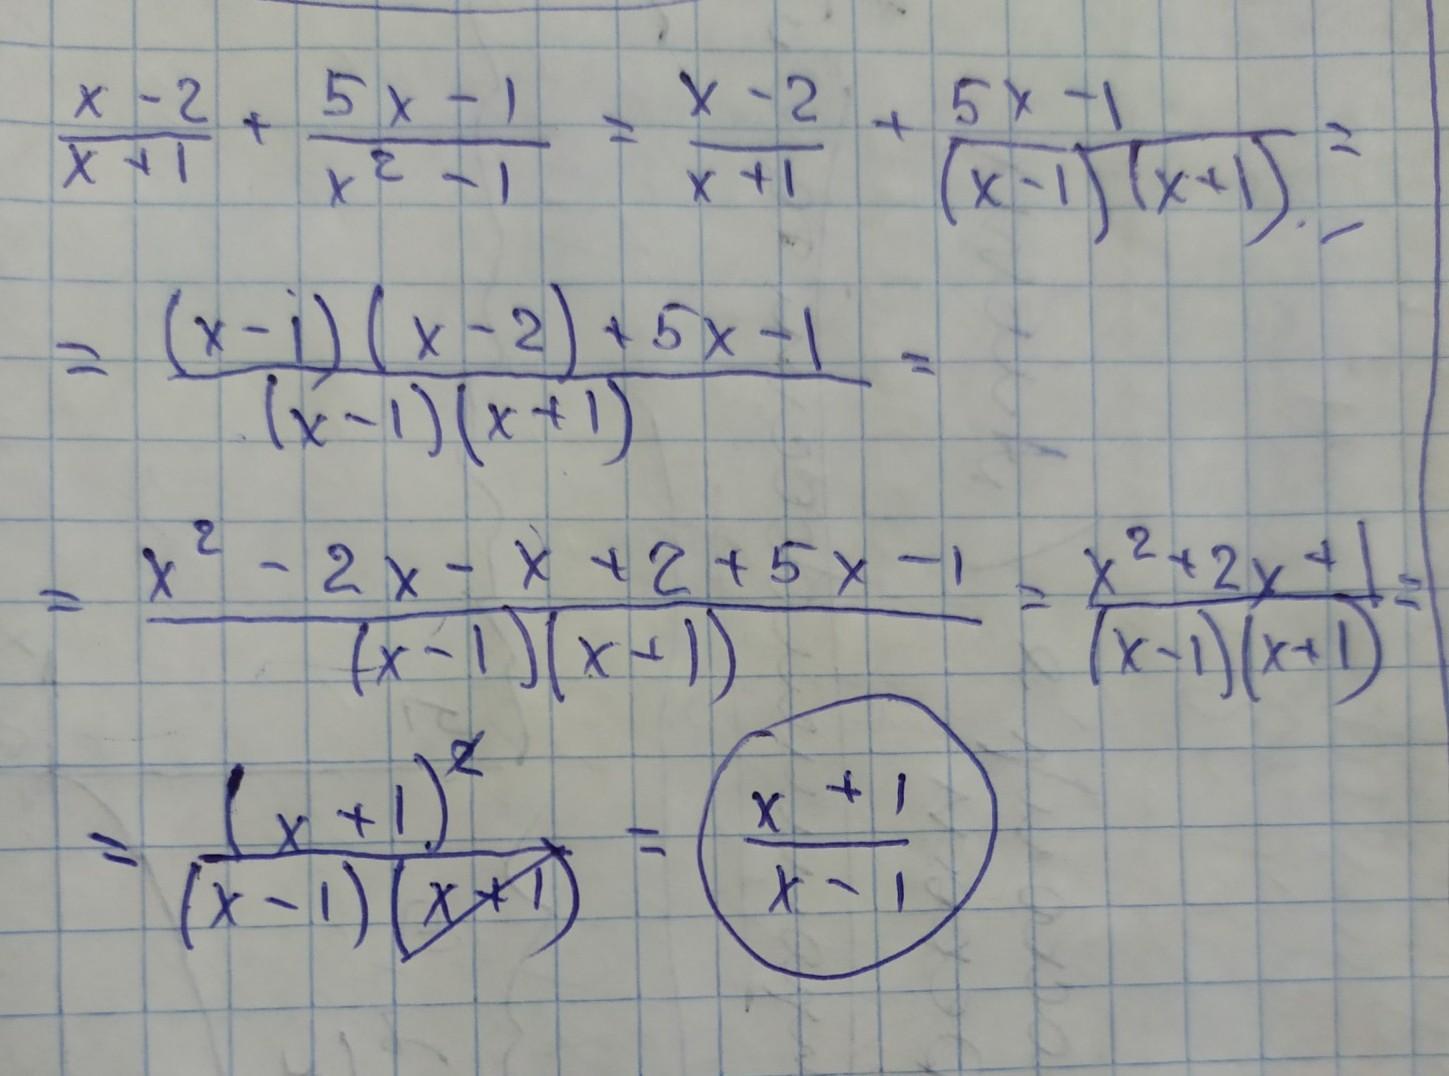 (x-2)/(x+1) + (5x-1)/(x²-1) = (x-2)/(x+1) + (5x-1)/((x-1)(x+1)) =
= ((x-1)(x-2)+5x-1)/((x-1)(x+1)) =
= (x²-2x-x+2+5x-1)/((x-1)(x+1)) = (x²+2x+1)/((x-1)(x+1)) =
= (x+1)²/((x-1)(x+1)) = (x+1)/(x-1)